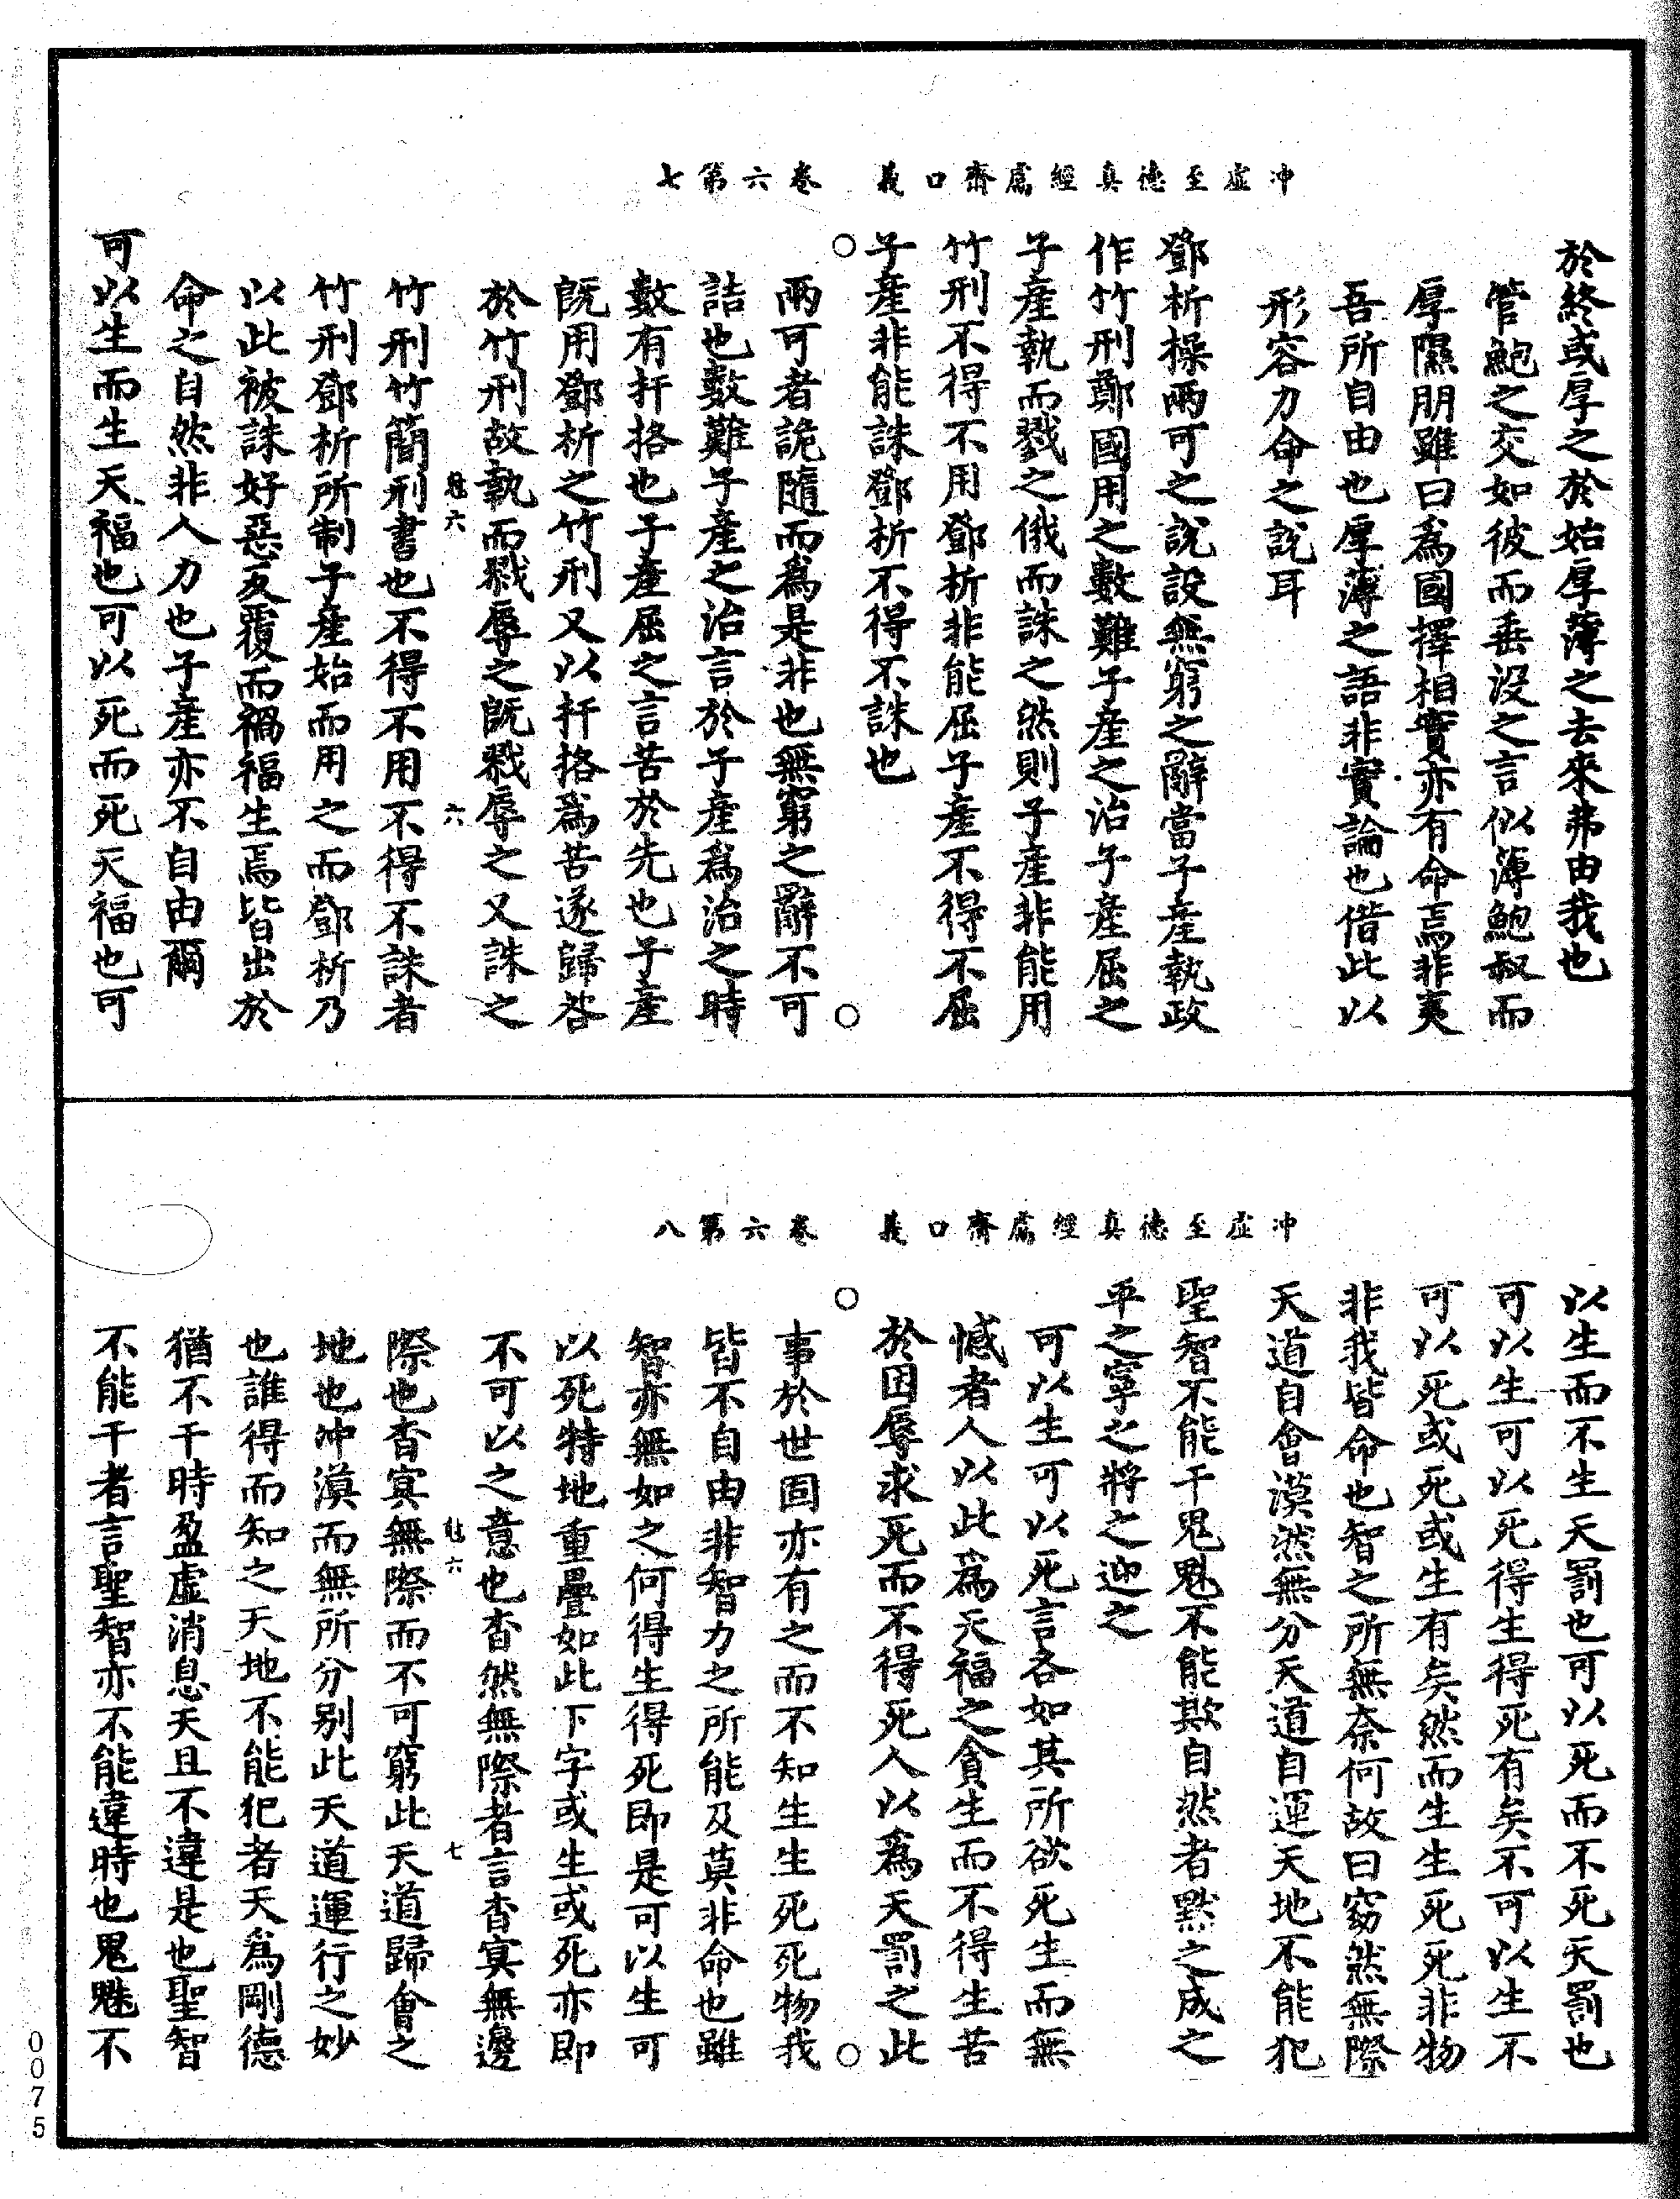 冲虛至德真經鬳齋口義　卷六第七
於終或厚之於始厚薄之去來弗由我也
管鮑之交如彼而垂没之言似薄鮑叔而
厚隰朋雖曰為國擇相實亦有命焉非夷
吾所自由也厚薄之語非實論也借此以
形容力命之說耳
鄧析操兩可之說設無窮之辭當子產執政
作竹刑鄭國用之數難子產之治子產屈之
子產執而戮之俄而誅之然則子產非能用
竹刑不得不用鄧析非能屈子產不得不屈
子產非能誅鄧析不得不誅也
○　○
兩可者詭隨而為是非也無窮之辭不可
詰也數難子產之治言於子產為治之時
數有扞格也子產屈之言苦於先也子產
既用鄧析之竹刑又以扞格為苦遂歸咎
於竹刑故執而戮辱之既戮辱之又誅之
六　六
竹刑竹簡刑書也不得不用不得不誅者
竹刑鄧析所制子產始而用之而鄧析乃
以此被誅好惡反覆而禍福生焉皆出於
命之自然非人力也子產亦不自由爾
可以生而生天福也可以死而死天福也可
冲虛至德真經鬳齋口義　卷六第八
以生而不生天罰也可以死而不死天罰也
可以生可以死得生得死有矣不可以生不
可以死或死或生有矣然而生生死死非物
非我皆命也智之所無奈何故曰窈然無際
天道自會漠然無分天道自運天地不能犯
聖智不能干鬼魅不能欺自然者默之成之
平之寧之將之迎之
可以生可以死言各如其所欲死生而無
憾者人以此為天福之貪生而不得生苦
於困辱求死而不得死人以為天罰之此
○　○
事於世固亦有之而不知生生死死物我
皆不自由非智力之所能及莫非命也雖
智亦無如之何得生得死即是可以生可
以死特地重疊如此下字或生或死亦即
不可以之意也杳然無際者言杳冥無邊
六　七
際也杳冥無際而不可窮此天道歸會之
地也冲漠而無所分别此天道運行之妙
也誰得而知之天地不能犯者天為剛德
猶不干時盈虛消息天且不違是也聖智
不能干者言聖智亦不能違時也鬼魅不
0075